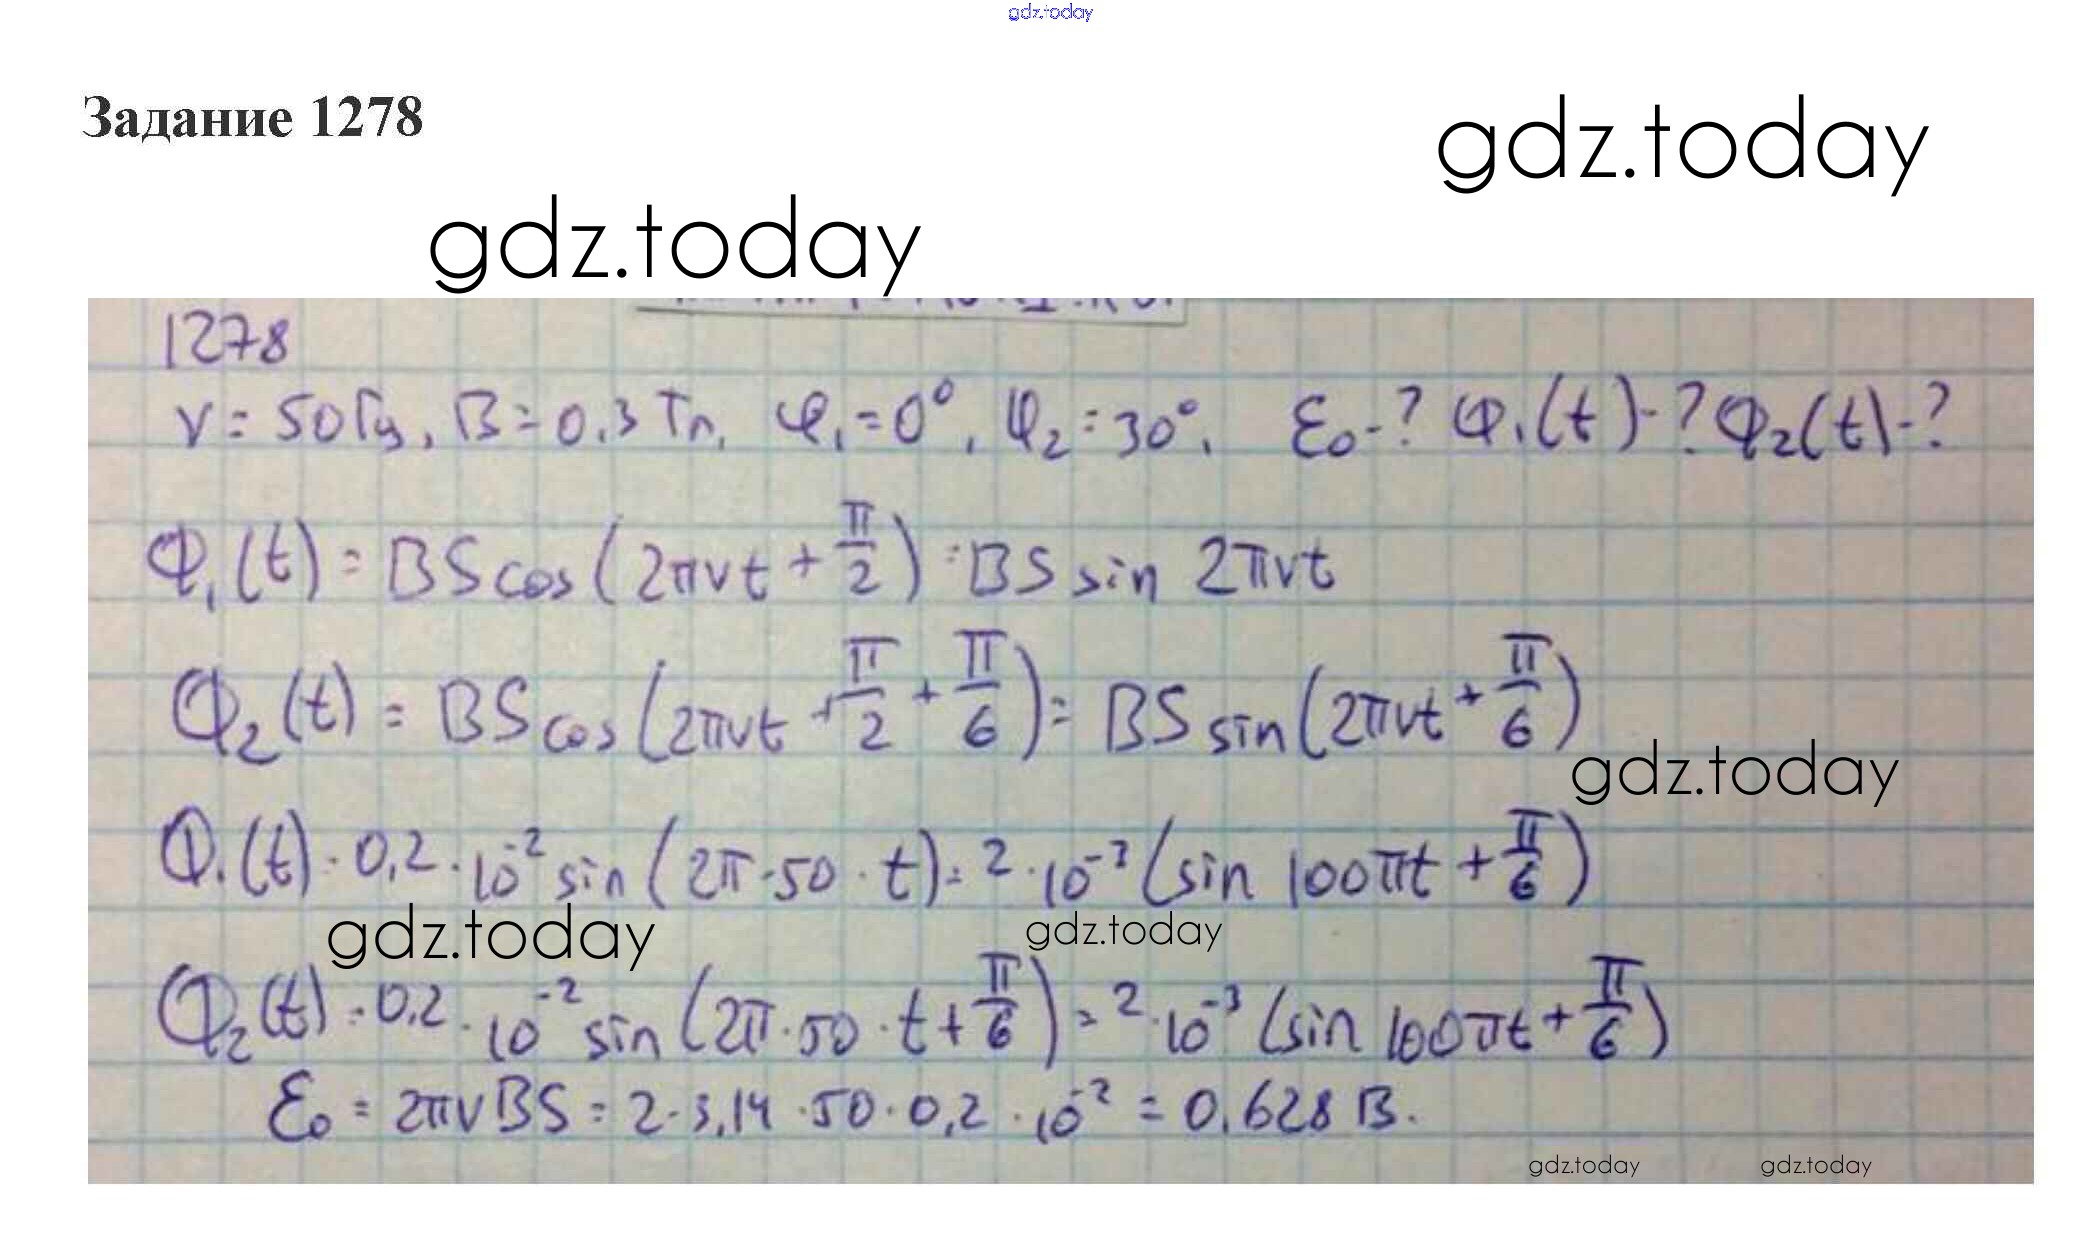 gdz.today
Задание 1278
gdz.today
gdz.today
1278
ν = 50 Гц, B = 0.3 Тл, φ₁ = 0°, φ₂ = 30°. Ɛ₀ - ? Ф₁(t) - ? Ф₂(t) - ?
Ф₁(t) = BS cos(2πνt + π/2) = BS sin 2πνt
Ф₂(t) = BS cos(2πνt + π/2 + π/6) = BS sin(2πνt + π/6)
gdz.today
Ф₁(t) = 0,2 · 10⁻² sin(2π · 50 · t) = 2 · 10⁻³ (sin 100πt + π/6)
gdz.today gdz.today
Ф₂(t) = 0,2 · 10⁻² sin(2π · 50 · t + π/6) = 2 · 10⁻³ (sin 100πt + π/6)
Ɛ₀ = 2πνBS = 2 · 3,14 · 50 · 0,2 · 10⁻² = 0,628 В.
gdz.today gdz.today